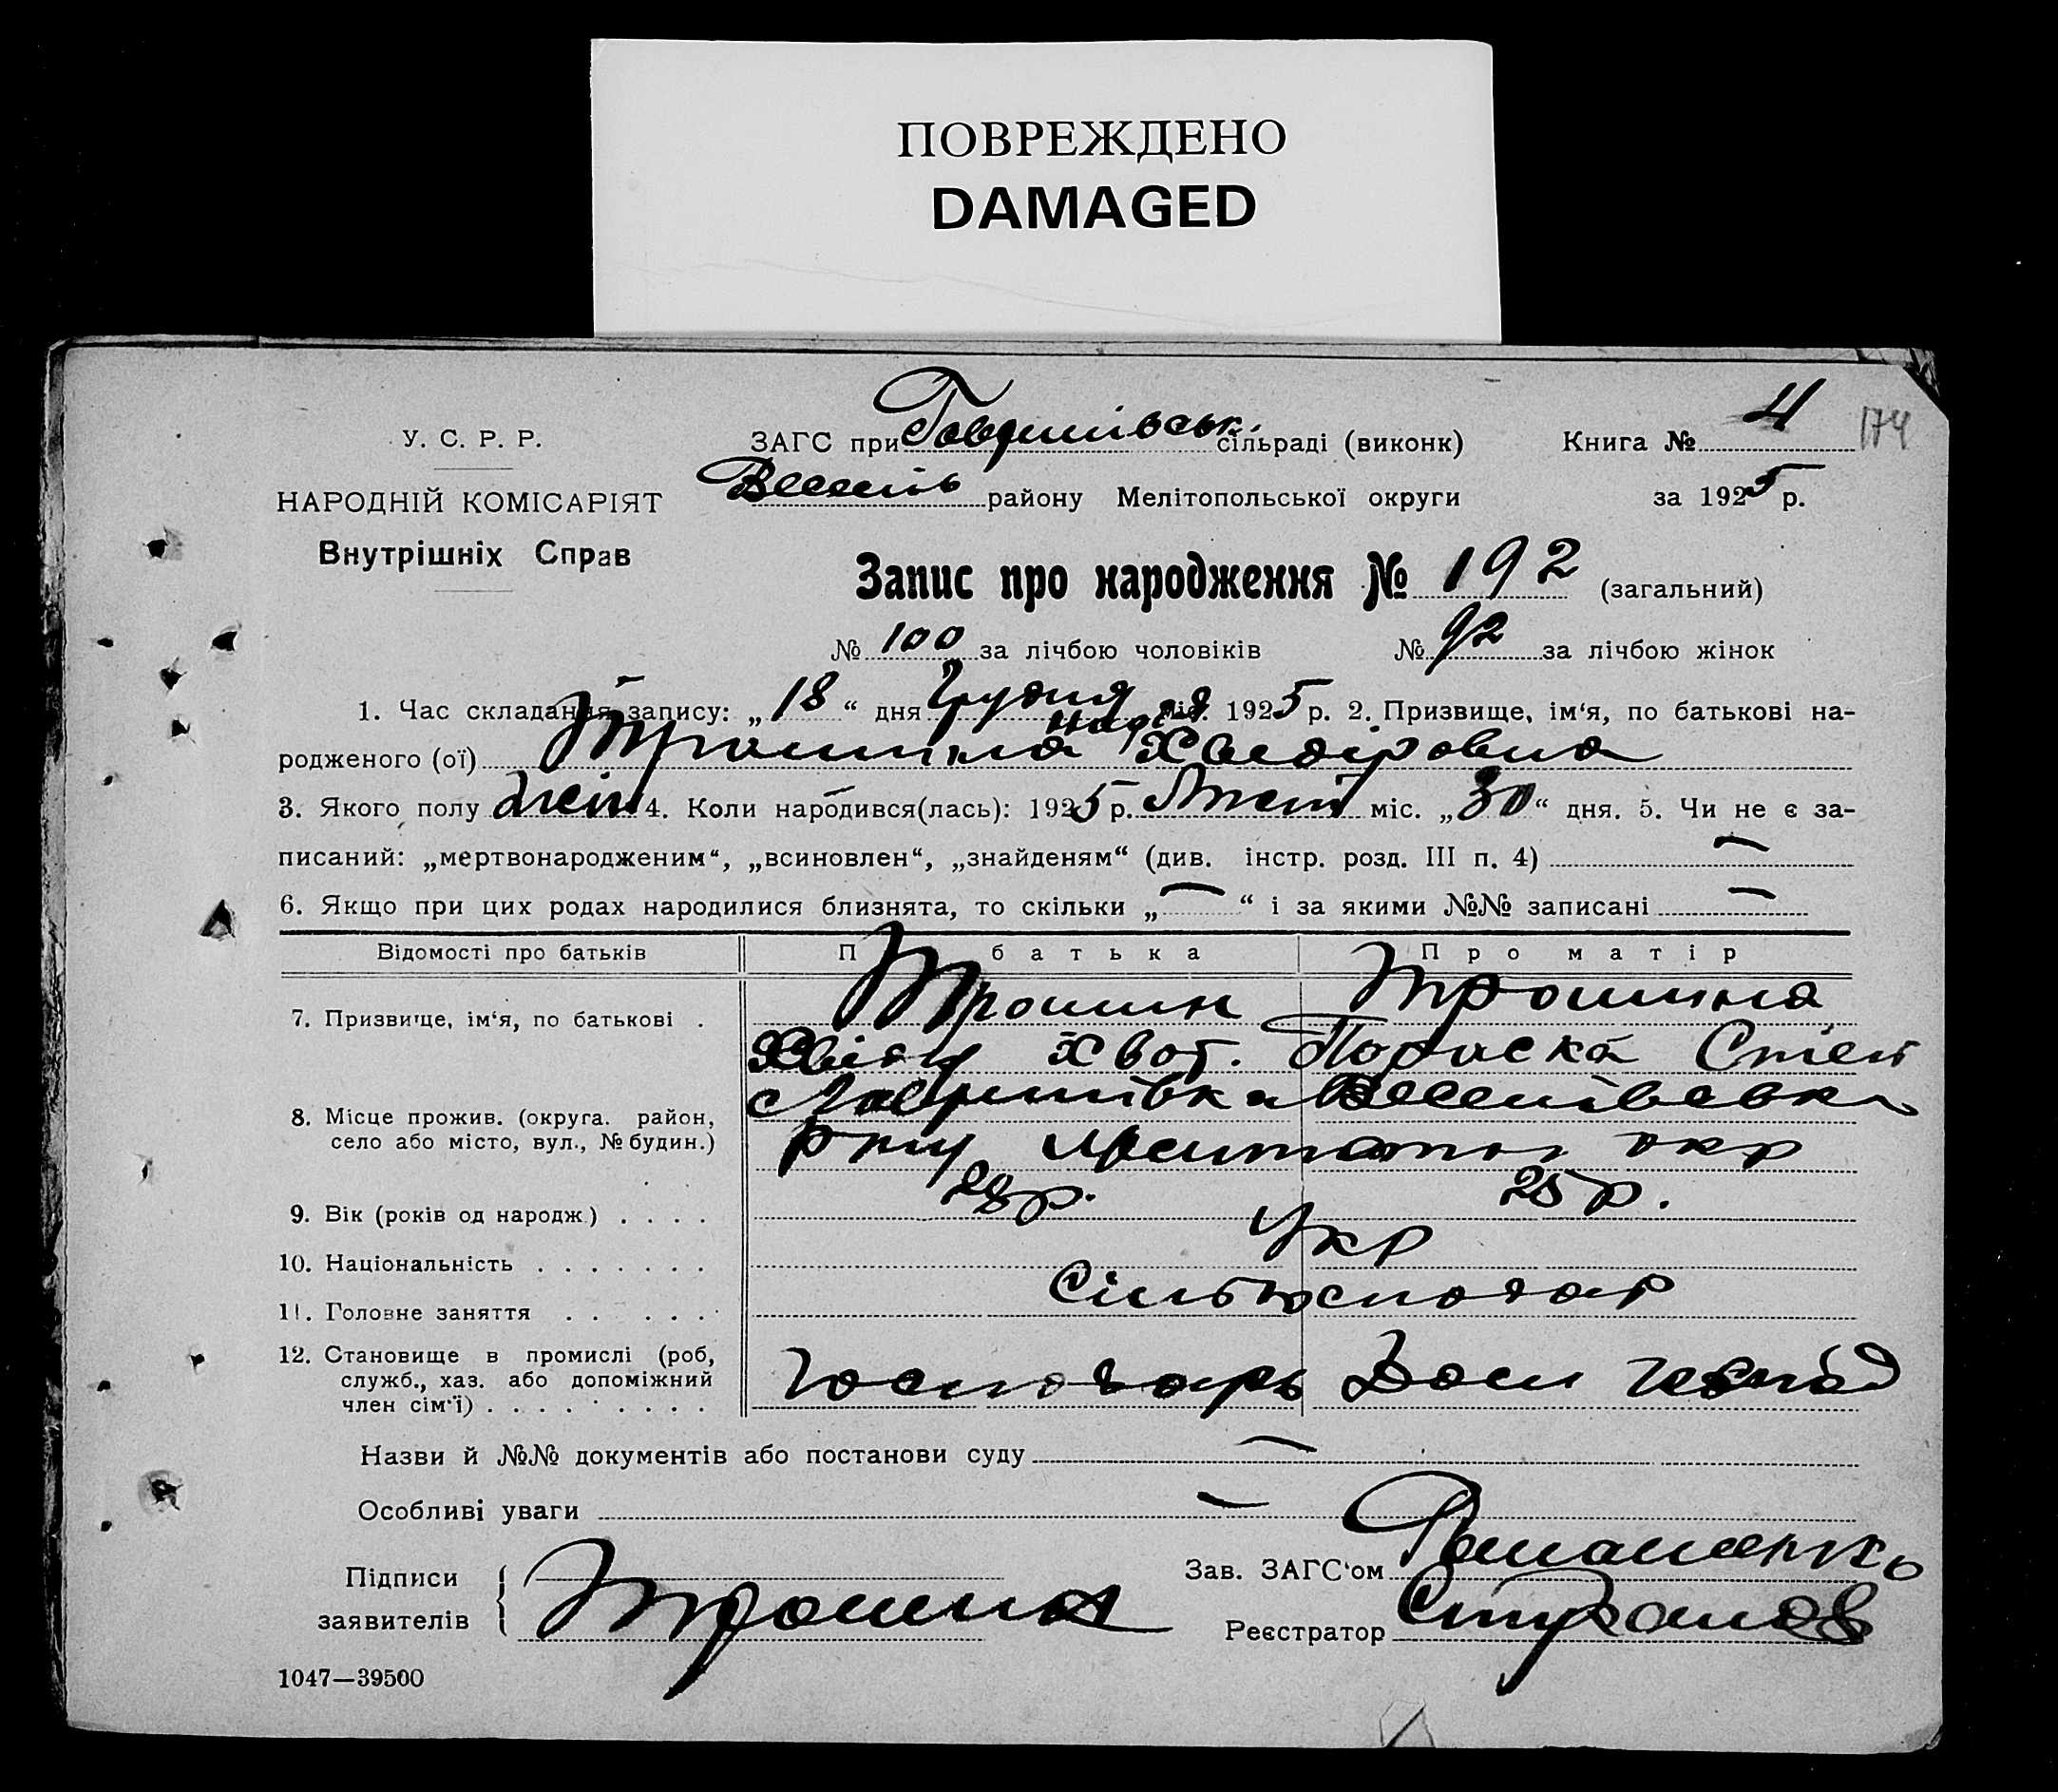 ПОВРЕЖДЕНО
DAMAGED
У. С. Р. Р.
ЗАГС при сільраді (виконк)
Книга № 4 174
НАРОДНІЙ КОМІСАРІЯТ
району Мелітопольської округи
за 1925 р.
Внутрішніх Справ
Запис про народження № 192 (загальний)
№ 100 за лічбою чоловіків № 92 за лічбою жінок
1. Час складання запису: „ 18 “ дня Грудня міс. 1925 р. 2. Призвище, ім‘я, по батькові на-
Надія
родженого (ої) Трошина Хведіровна
3. Якого полу жін 4. Коли народився(лась): 1925 р. Лист міс. „ 30 “ дня. 5. Чи не є за-
писаний: „мертвонародженим“, „всиновлен“, „знайденям“ (див. інстр. розд. III п. 4) —
6. Якщо при цих родах народилися близнята, то скільки „ — “ і за якими №№ записані —
Відомості про батьків
П батька
Про матір
7. Призвище, ім‘я, по батькові .
Трошин
Трошина
Параска Степ
8. Місце прожив. (округа. район,
село або місто, вул., № будин.)
окр
9. Вік (років од народж.) . . . .
28 р.
25 р.
10. Національність . . . . . . .
Укр
11. Головне заняття . . . . . .
Сільгосподар
12. Становище в промислі (роб,
служб., хаз. або допоміжний
член сім‘ї) . . . . . . . . .
Господарь
Дом
Назви й №№ документів або постанови суду —
Особливі уваги —
Підписи
заявителів
Трошин
Зав. ЗАГС‘ом
Реєстратор
1047—39500